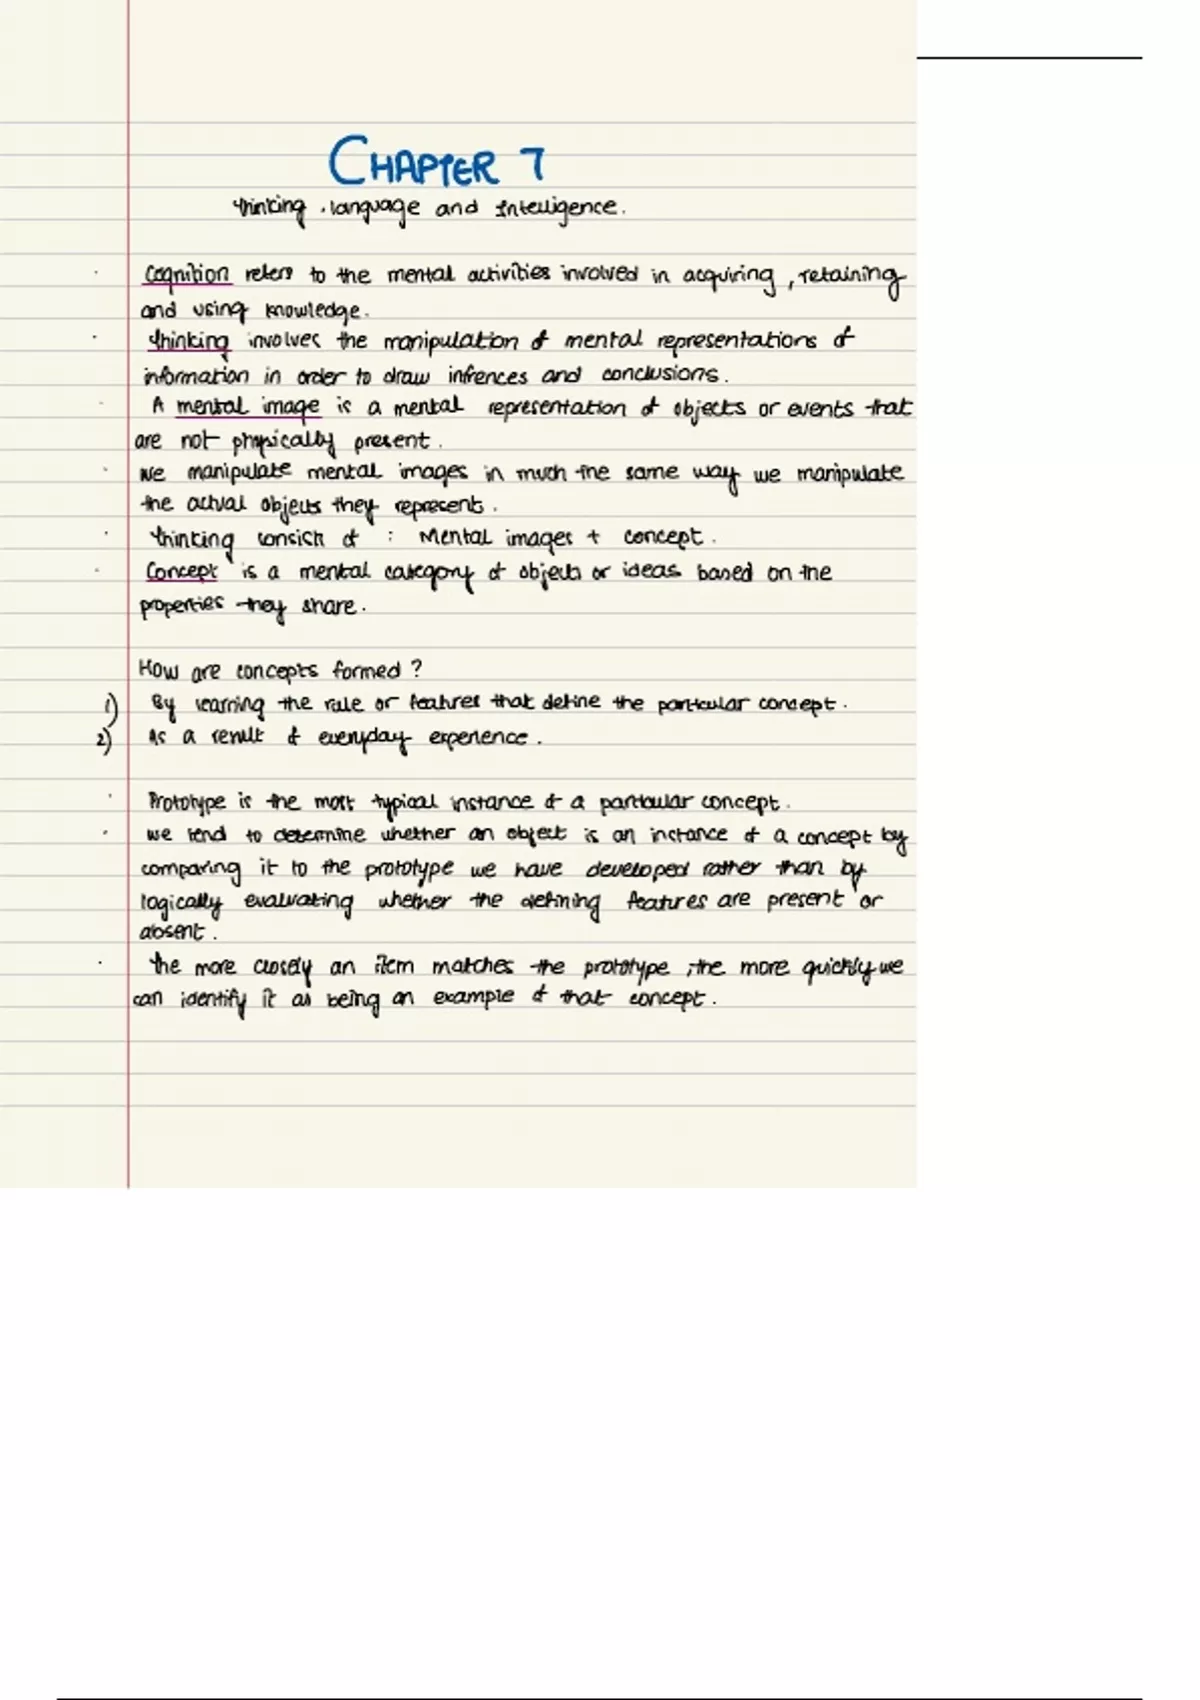 CHAPTER 7
thinking, language and Intelligence.
· Cognition refers to the mental activities involved in acquiring, retaining
and using knowledge.
· thinking involves the manipulation of mental representations of
information in order to draw infrences and conclusions.
· A mental image is a mental representation of objects or events that
are not physically present.
· we manipulate mental images in much the same way we manipulate
the actual objects they represent.
· thinking consist of : Mental images + concept.
· Concept is a mental category of objects or ideas based on the
properties they share.
How are concepts formed?
1) By learning the rule or features that define the particular concept.
2) As a result of everyday experience.
· Prototype is the most typical instance of a particular concept.
· we tend to determine whether an object is an instance of a concept by
comparing it to the prototype we have developed rather than by
logically evaluating whether the defining features are present or
absent.
· the more closely an item matches the prototype, the more quickly we
can identify it as being an example of that concept.